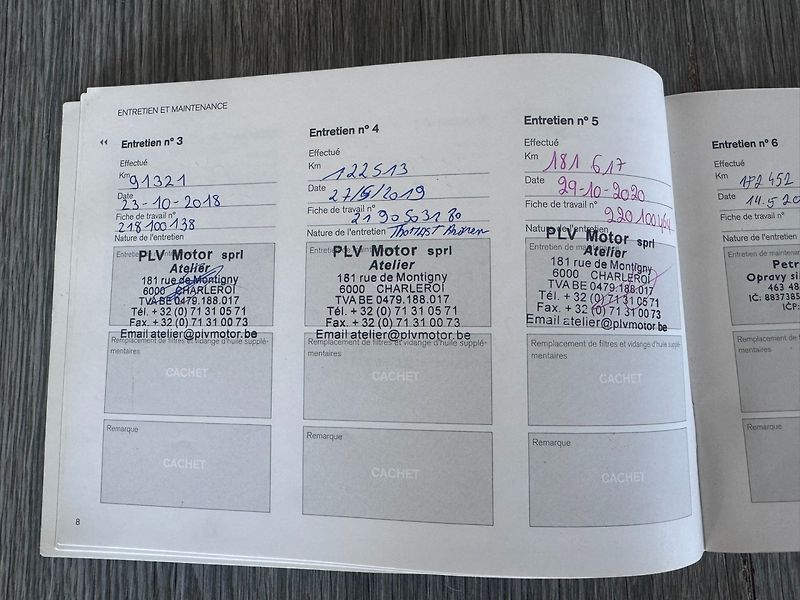 ENTRETIEN ET MAINTENANCE
Entretien nº 3
Effectué
Km 91321
Date 23-10-2018
Fiche de travail nº
218100138
Nature de l'entretien
PLV Motor sprl
Atelier
181 rue de Montigny
6000 CHARLEROI
TVA BE 0479.188.017
Tél. + 32 (0) 71 31 05 71
Fax. + 32 (0) 71 31 00 73
Email atelier@plvmotor.be
Remplacement de filtres et vidange d'huile supplé-
mentaires
CACHET
Remarque
CACHET
8
Entretien nº 4
Effectué
Km 122513
Date 27/5/2019
Fiche de travail nº
2190503180
Nature de l'entretien
PLV Motor sprl
Atelier
181 rue de Montigny
6000 CHARLEROI
TVA BE 0479.188.017
Tél. + 32 (0) 71 31 05 71
Fax. + 32 (0) 71 31 00 73
Email atelier@plvmotor.be
Remplacement de filtres et vidange d'huile supplé-
mentaires
CACHET
Remarque
CACHET
Entretien nº 5
Effectué
Km 181 617
Date 29-10-2020
Fiche de travail nº
Nature de l'entretien
PLV Motor sprl
Atelier
181 rue de Montigny
6000 CHARLEROI
TVA BE 0479.188.017
Tél. + 32 (0) 71 31 05 71
Fax. + 32 (0) 71 31 00 73
Email atelier@plvmotor.be
Remplacement de filtres et vidange d'huile supplé-
mentaires
CACHET
Remarque
CACHET
Entretien nº 6
Effectué
Km 172 452
Date 14.5 20
Fiche de travail nº
Nature de l'entretien
Entretien de maintenance
Petr
Opravy si
463 48
IČ: 883738
IČP:
Remplacement de
mentaires
Remarque